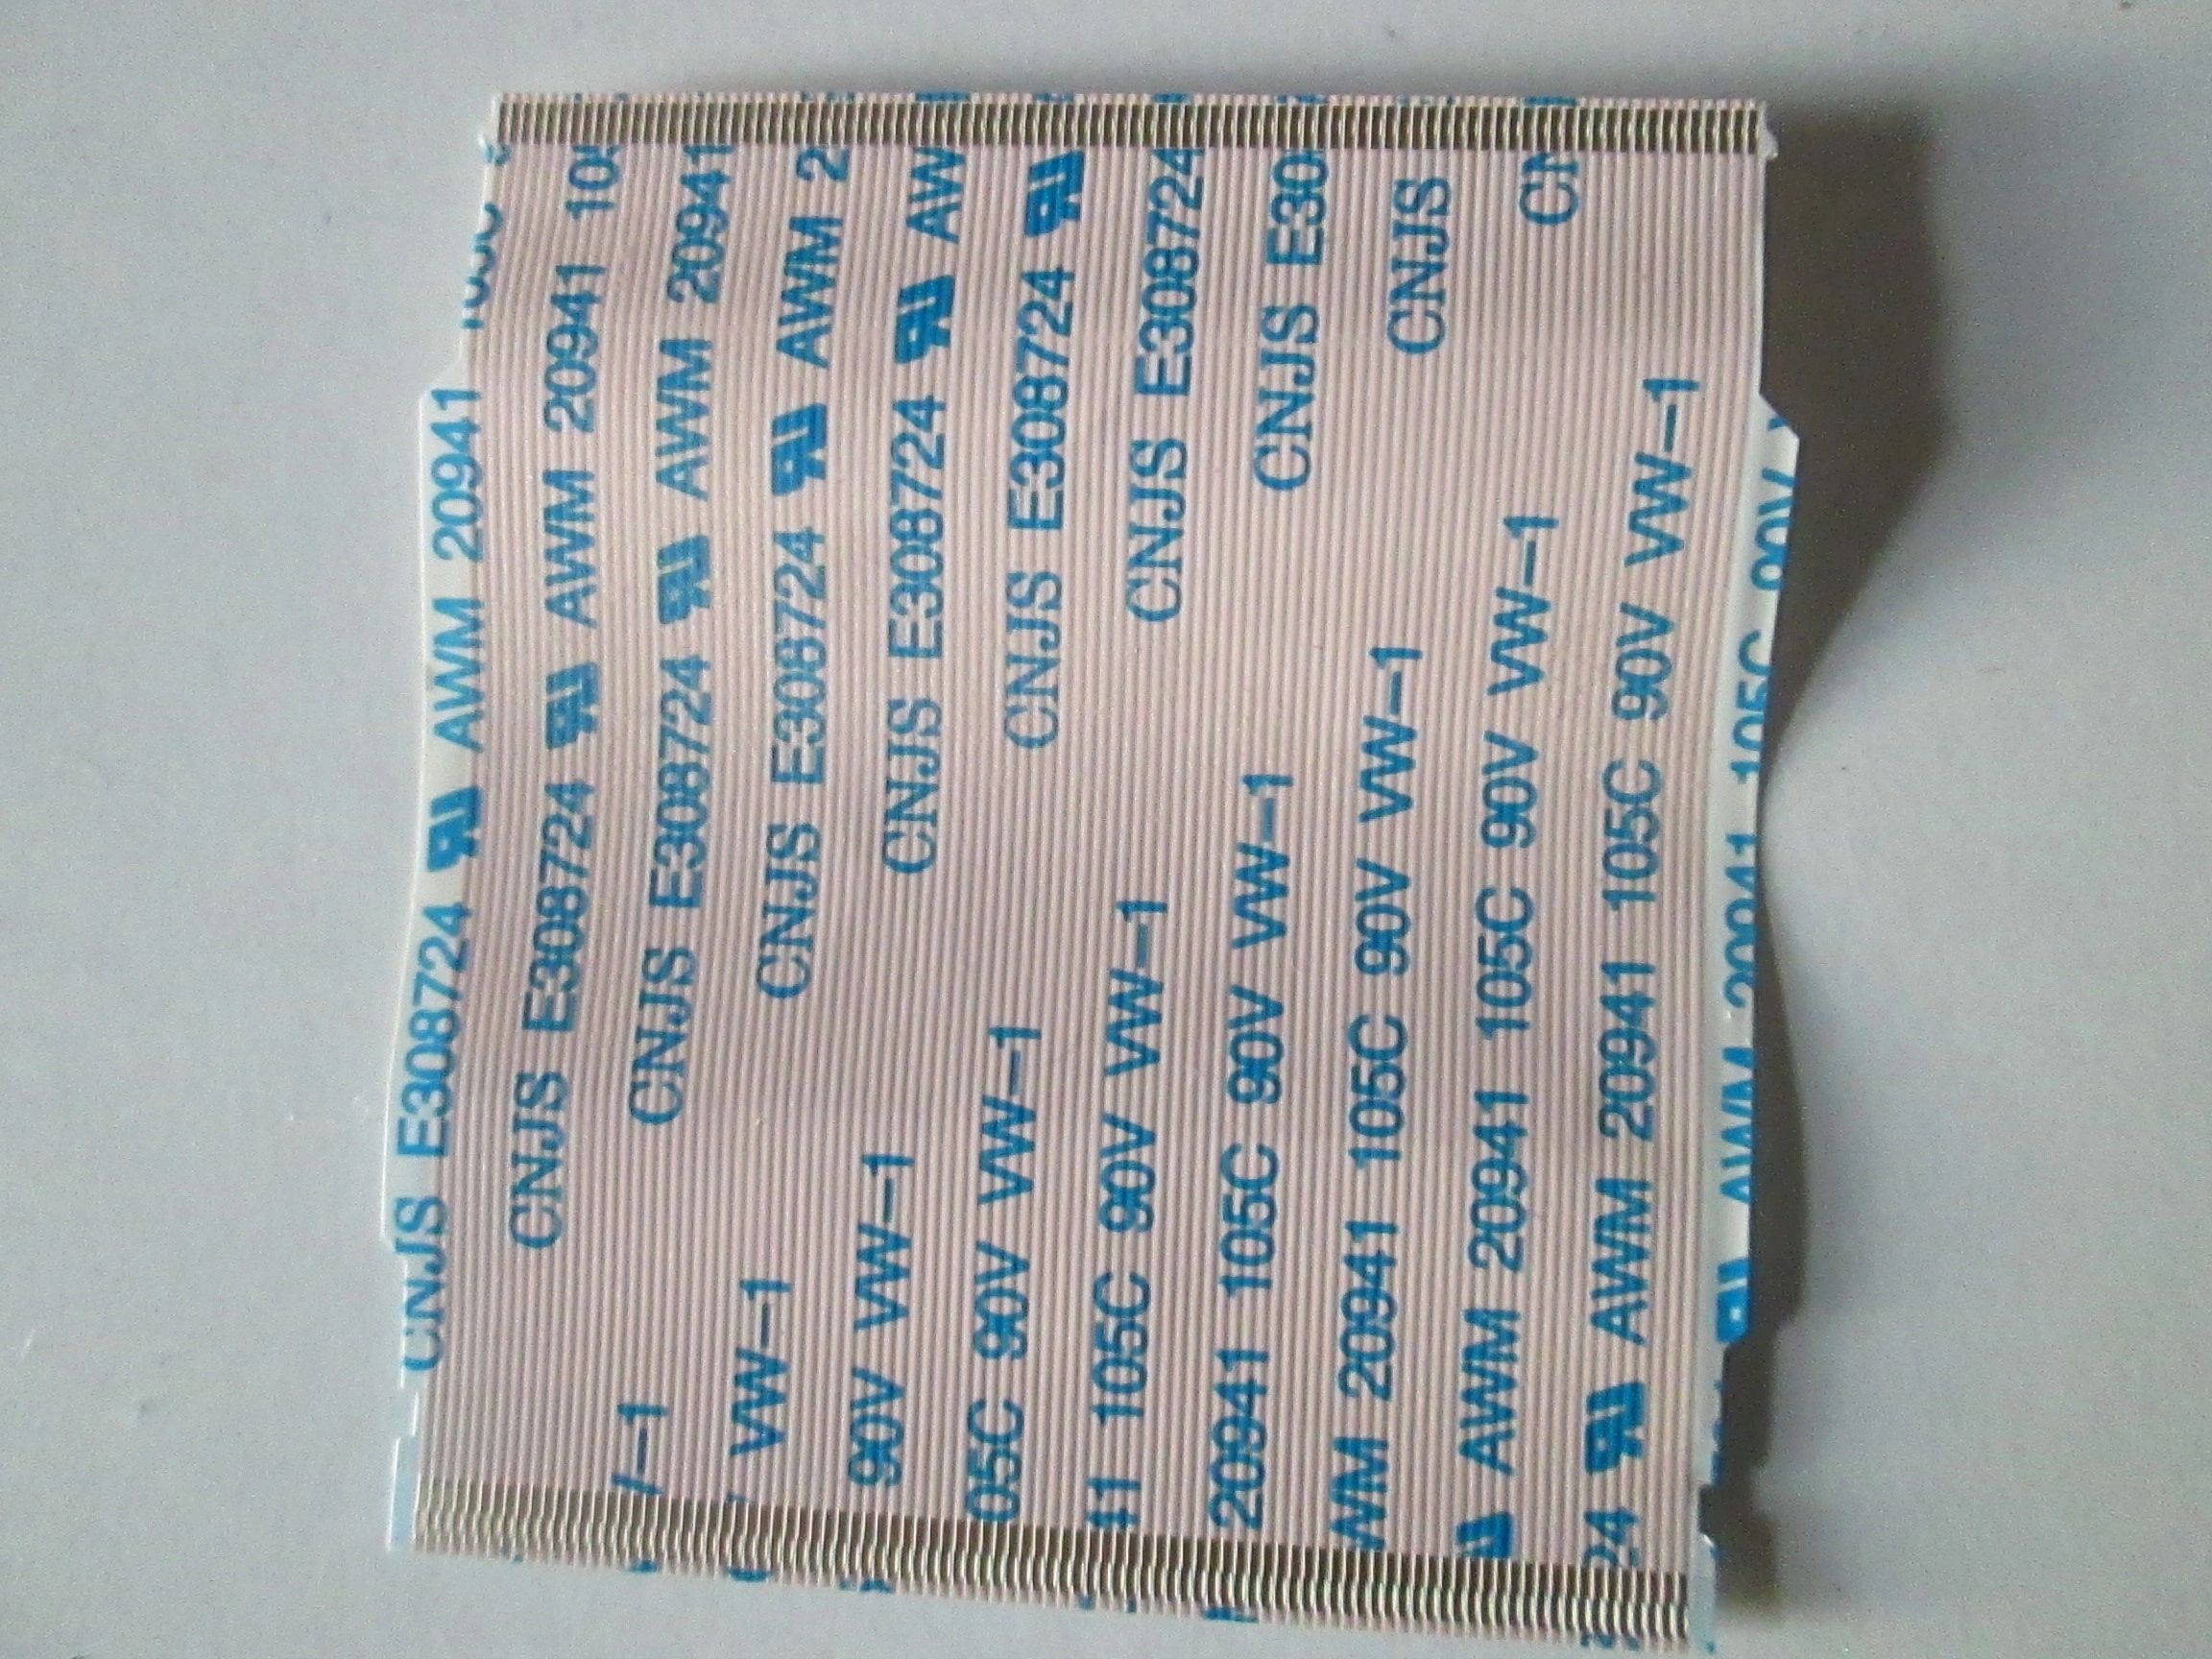 CNJS E308724 AWM 20941
CNJS E308724 AWM 20941
CNJS E308724 AWM 20941
CNJS E308724 AWM
CNJS E308724
CNJS E308724
CNJS E308724
CNJS
CNJS
VW-1
90V VW-1
90V VW-1
105C 90V VW-1
20941 105C 90V VW-1
20941 105C 90V VW-1
AWM 20941 105C 90V VW-1
AWM 20941 105C 90V VW-1
AWM 20941 105C 90V